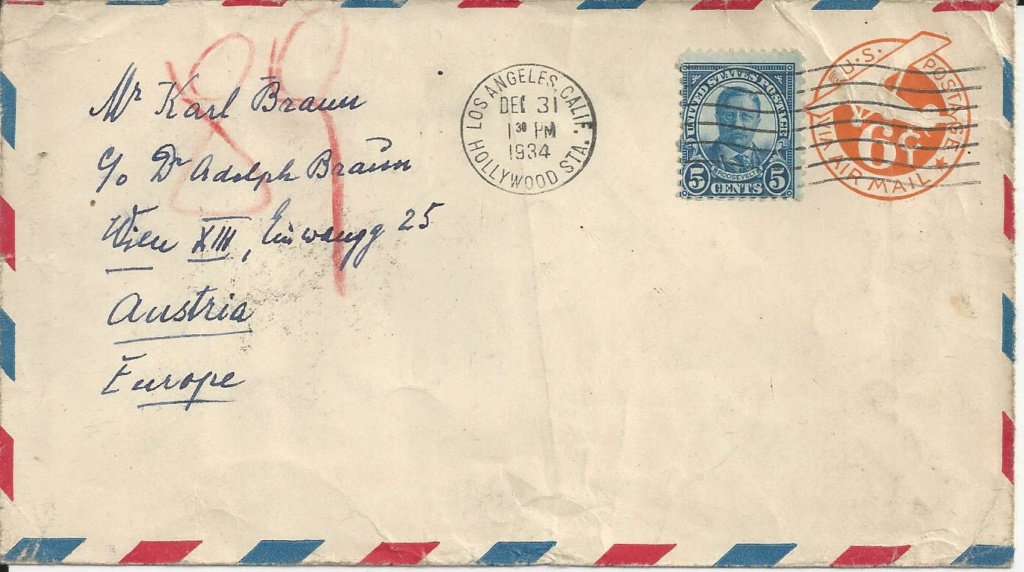 89
Mr Karl Braun
c/o Dr Adolph Braun
Wien XIII, Einwangg 25
Austria
Europe
LOS ANGELES, CALIF.
DEC 31
1 30 PM
1934
HOLLYWOOD STA.
UNITED STATES POSTAGE
ROOSEVELT
5 CENTS 5
U.S. POSTAGE
6¢
VIA AIR MAIL